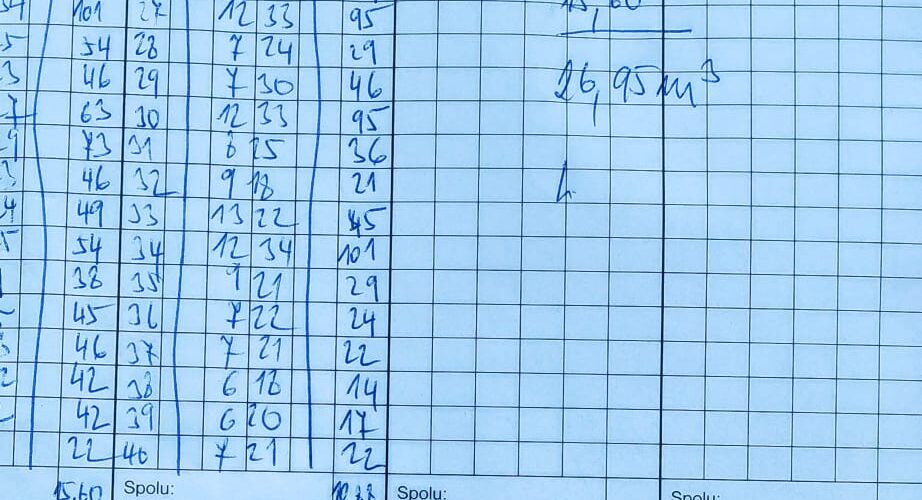 101 27 12 33 95
54 28 7 24 29
46 29 7 30 46
26,95 m³
63 30 12 33 95
73 31 8 25 36
46 32 9 18 21
49 33 13 22 45
54 34 12 34 101
38 35 9 21 29
45 36 7 22 24
46 37 7 21 22
42 38 6 18 14
42 39 6 20 17
22 40 7 21 22
15,60 Spolu: Spolu: Spolu: